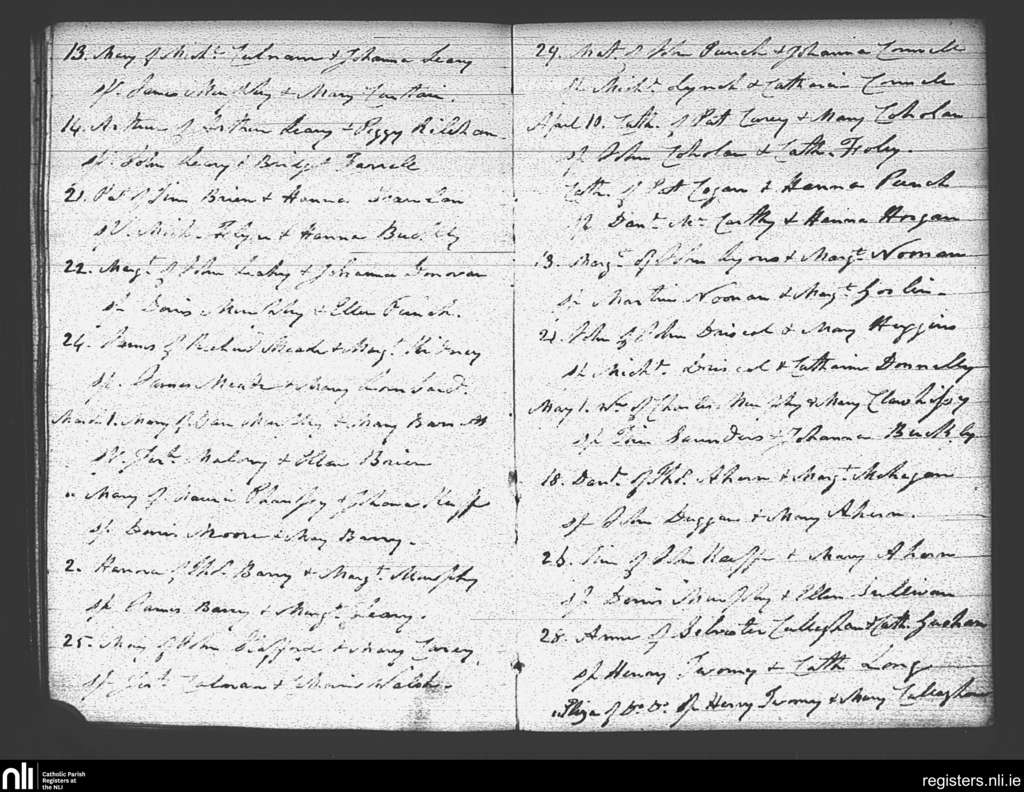 13. Mary of Michl. Colman & Johanna Leary
Sp. James Murphy & Mary
14. Arthur of Arthur Leary & Peggy
Sp. John Leary & Bridget Farrell
21. Pat of Tim Brien & Hanna
Sp. Mich. & Hanna Buckley
22. Margt. of John Leahy & Johanna Donovan
Sp. Denis Murphy & Ellen Punch.
24. James of Richard Meade & Margt.
Sp. James Meade & Mary
March 1. Mary of Dan Murphy & Mary Barrett
Sp. & Ellen Brien
" Mary of & Johana Keeffe
Sp. Denis Moore & Mary Barry.
2. Hanora of Thos. Barry & Margt. Murphy
Sp. James Barry & Margt. Leary.
25. Mary of John Stafford & Mary Carey
Sp. Colman & Walsh.
29. Mat. of John Punch & Johanna Connell
Sp. Michl. Lynch & Catharine Connell
April 10. Cath. of Pat Carey & Mary Coholan
Sp. John Coholan & Cath. Foley.
Cath. of Pat Cogan & Hanna Punch
Sp. Danl. Mc Carthy & Hanna Horgan
13. Margt. of John Lyons & Margt. Noonan
Sp. Martin Noonan & Margt.
21. John of John Driscol & Mary Higgins
Sp. Michl. Driscol & Catharine Donnelly
May 1. Wm. of Charles Murphy & Mary Clawhissy
Sp. Tim Saunders & Johanna Buckley
18. Danl. of Thos. Ahern & Margt. Mehegan
Sp. John Duggan & Mary Ahern.
26. Tim of John Keeffe & Mary Ahern
Sp. Denis Murphy & Ellen Sullivan
28. Anne of Selvester Callaghan & Cath.
Sp. Henry Twomey & Cath Long
" Eliza of Do. Do. Sp. Henry Twomey & Mary Callaghan
nli
Catholic Parish
Registers at
the NLI
registers.nli.ie